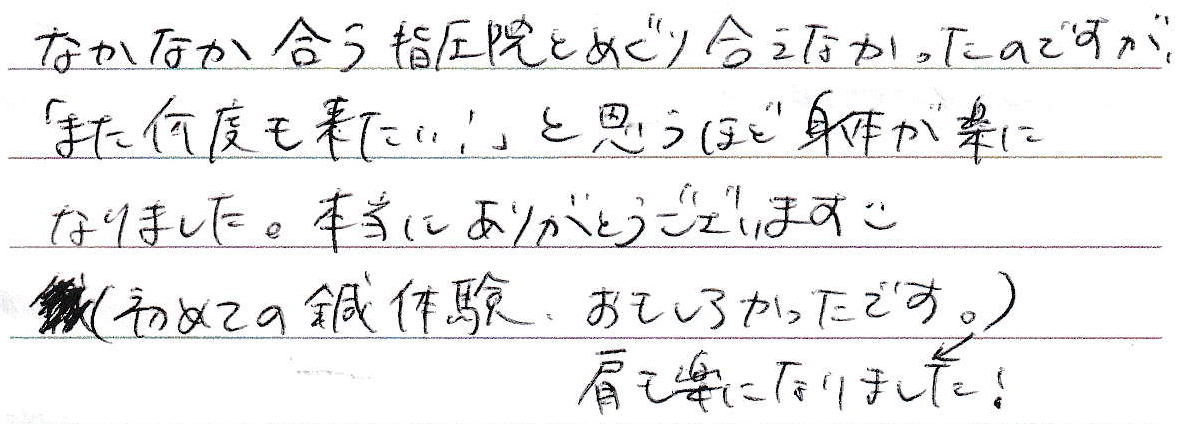 なかなか合う指圧院とめぐり合えなかったのですが、
「また何度も来たい!」と思うほど身体が楽に
なりました。本当にありがとうございます
(初めての鍼体験、おもしろかったです。)
肩も楽になりました!